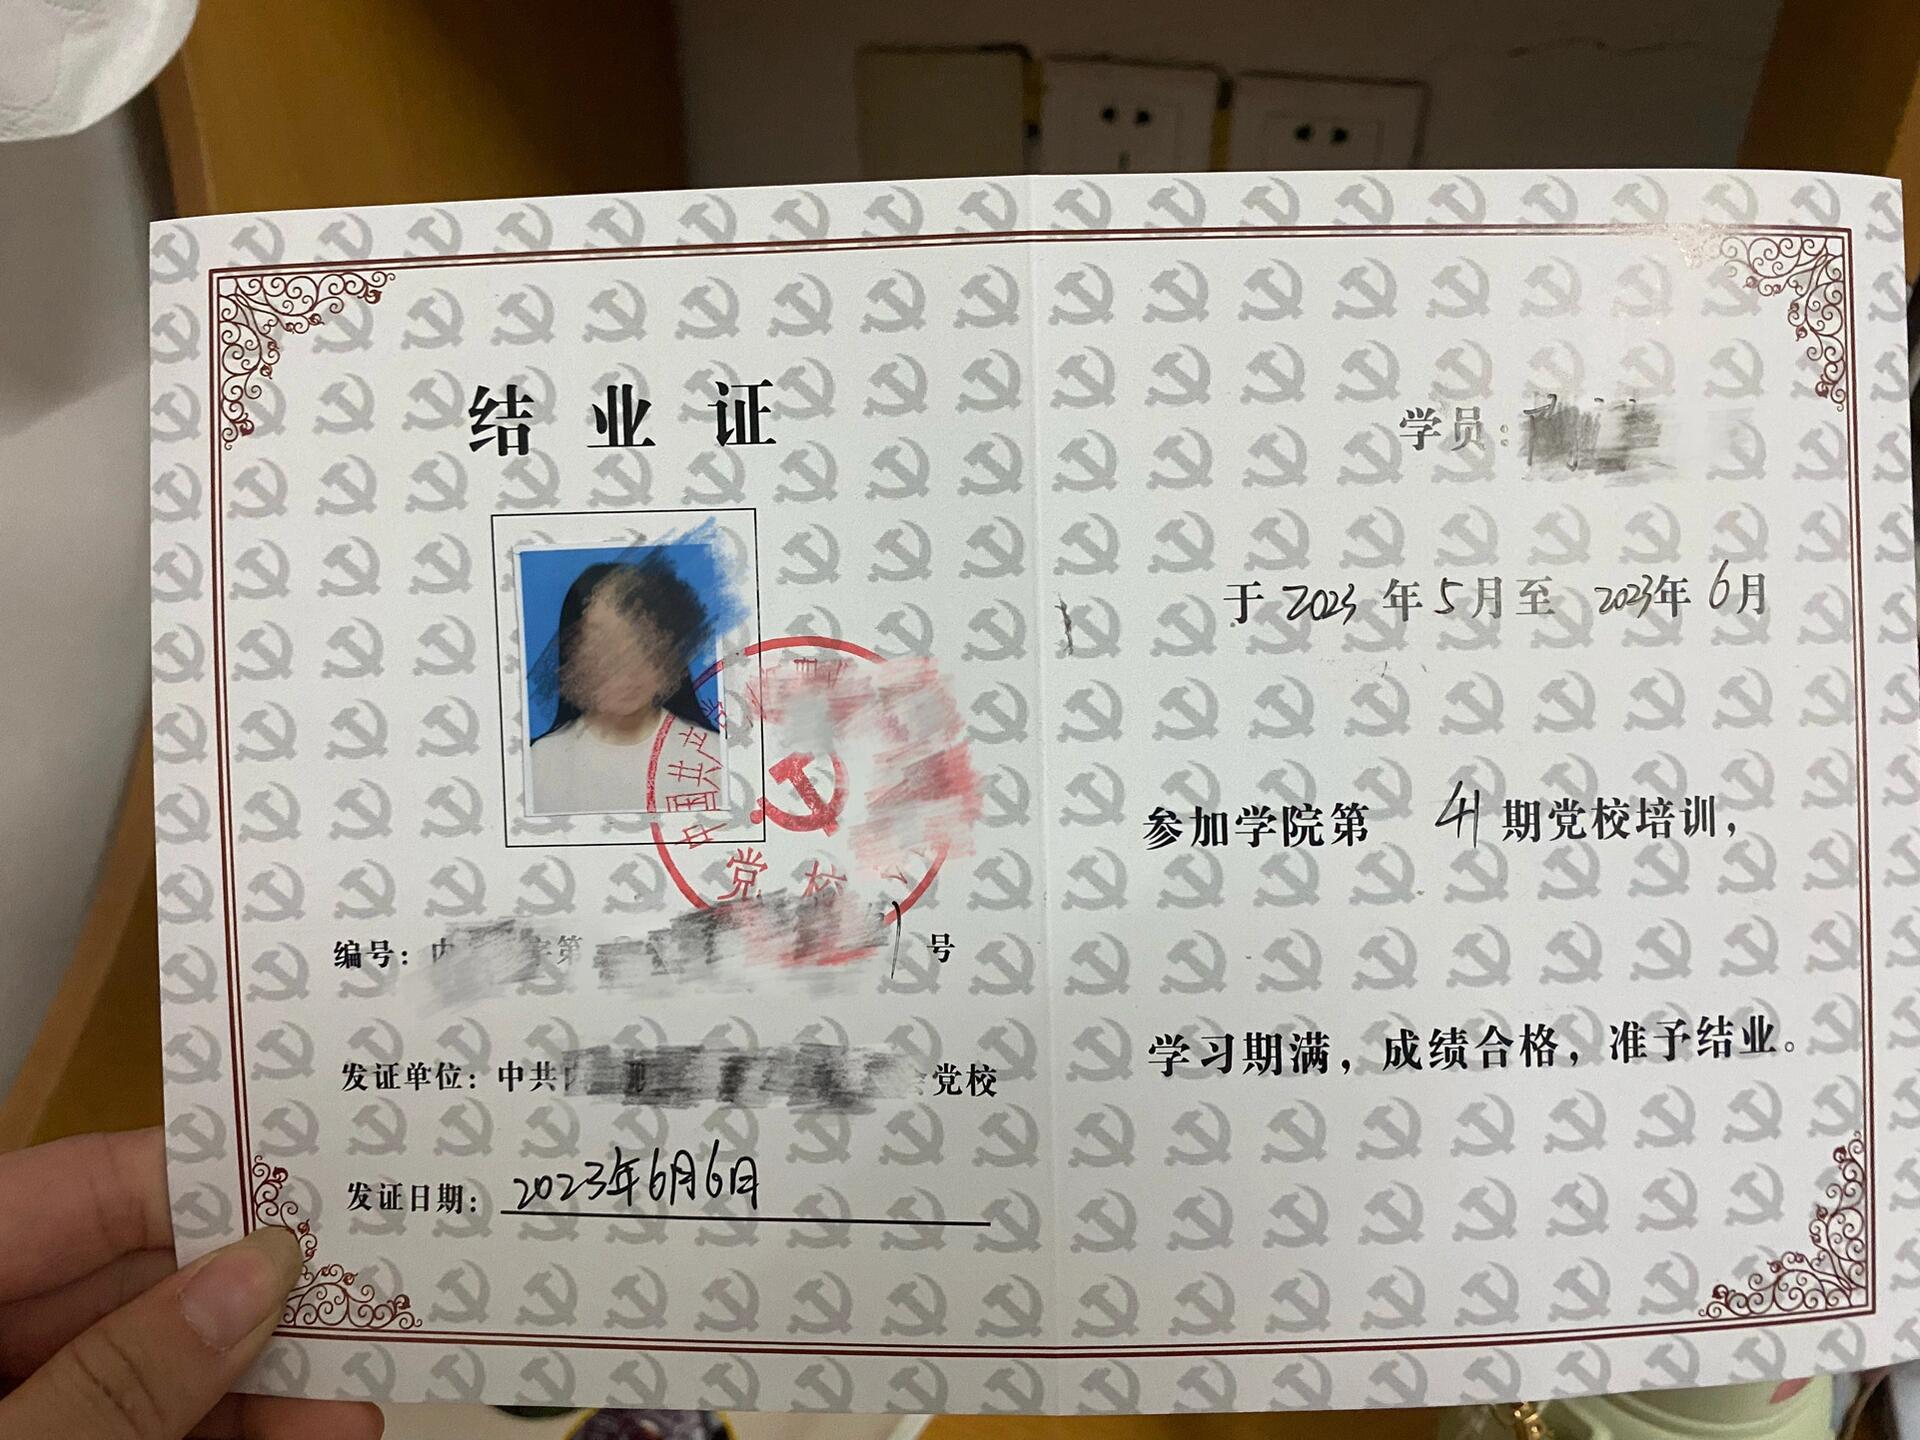 结业证
中国共产党
党校
编号：
第
号
发证单位：中共
党校
发证日期：2023年6月6日
学员：
于2023年5月至2023年6月
参加学院第41期党校培训，
学习期满，成绩合格，准予结业。